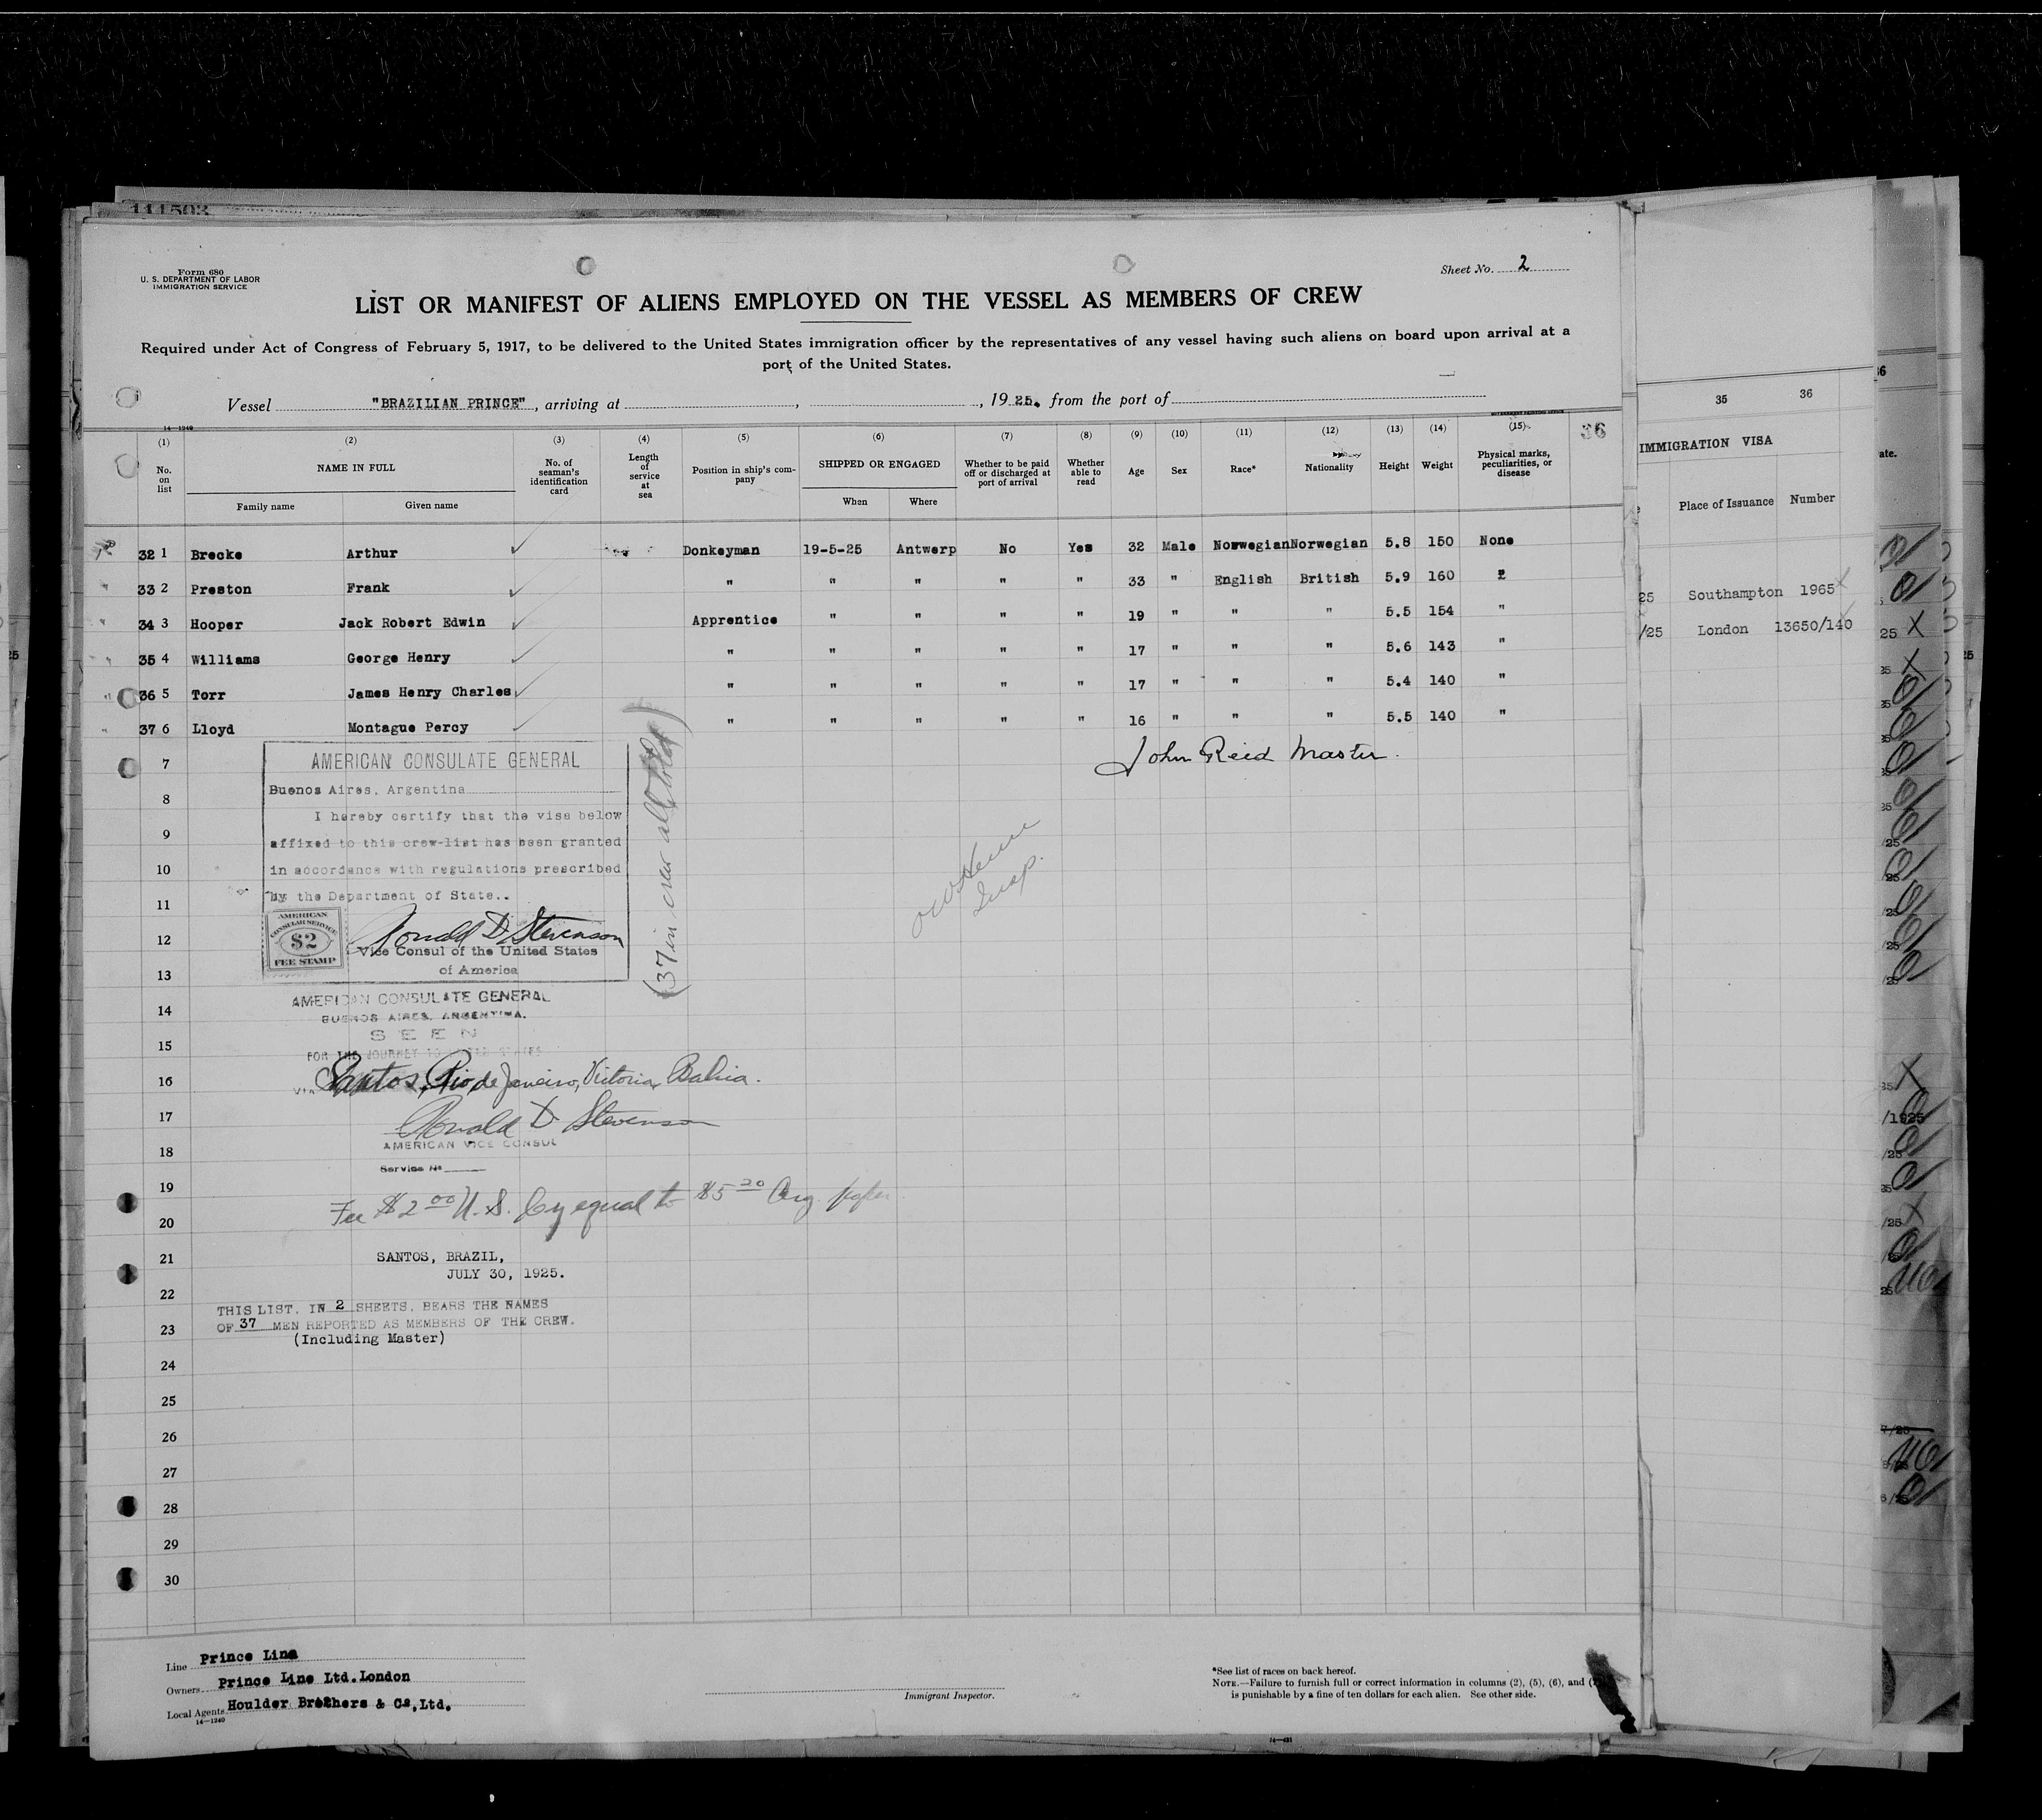 111503
Form 680
U. S. DEPARTMENT OF LABOR
IMMIGRATION SERVICE
Sheet No. 2
LIST OR MANIFEST OF ALIENS EMPLOYED ON THE VESSEL AS MEMBERS OF CREW
Required under Act of Congress of February 5, 1917, to be delivered to the United States immigration officer by the representatives of any vessel having such aliens on board upon arrival at a
port of the United States.
Vessel "BRAZILIAN PRINCE", arriving at , , 1925. from the port of
14—1240
GOVERNMENT PRINTING OFFICE
(1) (2) (3) (4) (5) (6) (7) (8) (9) (10) (11) (12) (13) (14) (15) 36
No. on list
NAME IN FULL
Family name Given name
No. of seaman's identification card
Length of service at sea
Position in ship's company
SHIPPED OR ENGAGED
When Where
Whether to be paid off or discharged at port of arrival
Whether able to read
Age
Sex
Race*
Nationality
Height
Weight
Physical marks, peculiarities, or disease
32 1 Brecke Arthur Donkeyman 19-5-25 Antwerp No Yes 32 Male Norwegian Norwegian 5.8 150 None
33 2 Preston Frank " " " " " 33 " English British 5.9 160 "
34 3 Hooper Jack Robert Edwin Apprentice " " " " 19 " " " 5.5 154 "
35 4 Williams George Henry " " " " " 17 " " " 5.6 143 "
36 5 Torr James Henry Charles " " " " " 17 " " " 5.4 140 "
37 6 Lloyd Montague Percy " " " " " 16 " " " 5.5 140 "
John Reid Master.
(37 in crew all told)
Insp.
7
8
9
10
11
12
13
14
15
16
17
18
19
20
21
22
23
24
25
26
27
28
29
30
AMERICAN CONSULATE GENERAL
Buenos Aires, Argentina
I hereby certify that the visa below
affixed to this crew-list has been granted
in accordance with regulations prescribed
by the Department of State..
AMERICAN
CONSULAR SERVICE
$2
FEE STAMP
Ronald D Stevenson
Vice Consul of the United States
of America
AMERICAN CONSULATE GENERAL
BUENOS AIRES, ARGENTINA.
SEEN
FOR THE JOURNEY TO UNITED STATES
VIA Santos, Rio de Janeiro, Victoria, Bahia.
Ronald D Stevenson
AMERICAN VICE CONSUL
Service No
Fee $2 00 U. S. Cy equal to $5 20 Arg. paper.
SANTOS, BRAZIL,
JULY 30, 1925.
THIS LIST, IN 2 SHEETS, BEARS THE NAMES
OF 37 MEN REPORTED AS MEMBERS OF THE CREW.
(Including Master)
Line Prince Line
Owners Prince Line Ltd. London
Local Agents Houlder Brothers & Co, Ltd.
14—1240
Immigrant Inspector.
*See list of races on back hereof.
NOTE.—Failure to furnish full or correct information in columns (2), (5), (6), and
is punishable by a fine of ten dollars for each alien. See other side.
35 36
IMMIGRATION VISA
Place of Issuance Number
25 Southampton 1965
/25 London 13650/140